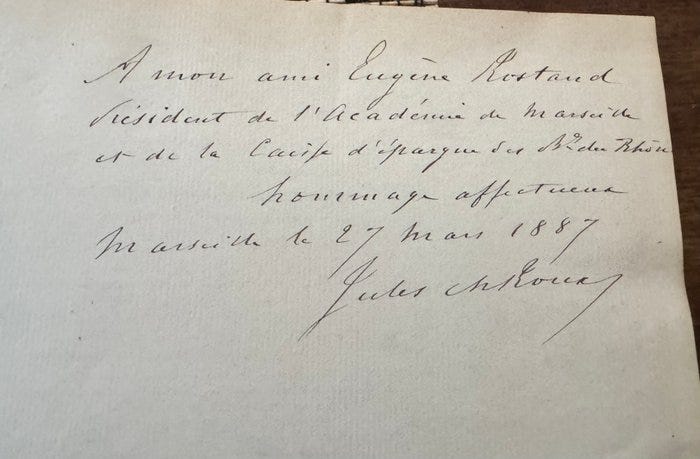 A mon ami Eugène Rostand
Président de l'Académie de Marseille
et de la Caisse d'épargne des B. du Rhône
hommage affectueux
Marseille le 27 mars 1887
Jules ch Roux